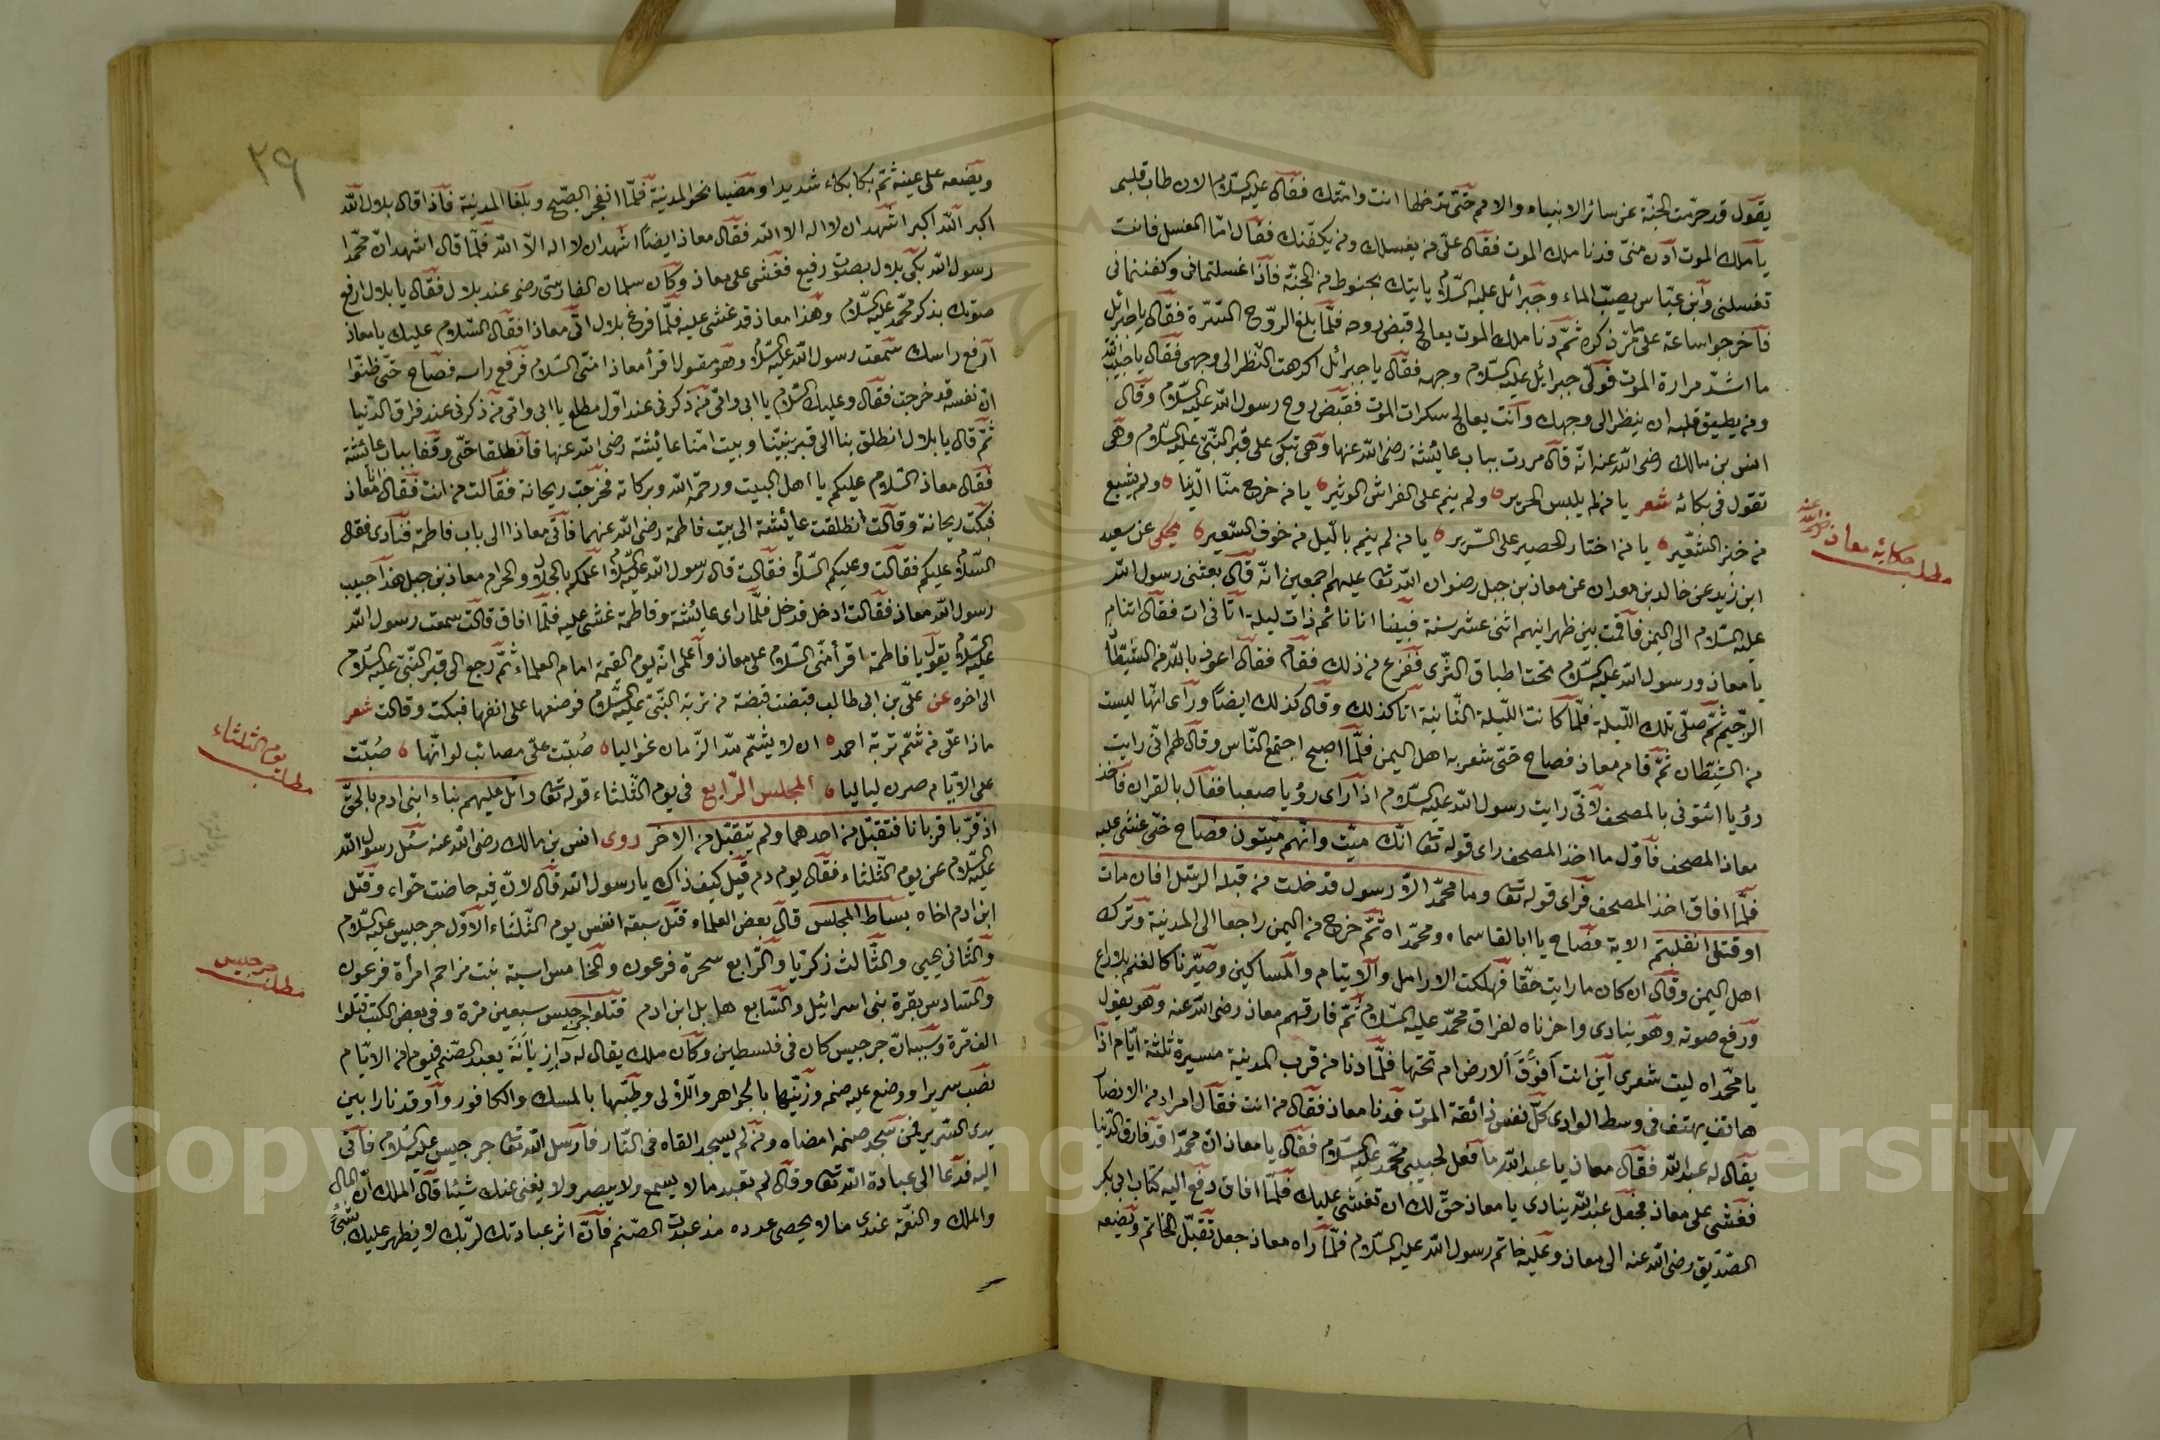 يقول قد حرّمت الجنّة عن سائر الانبياء والامم حتّى تدخلها انت وامّتك فقال عليه السّلام الان طاب قلبى
يا ملك الموت ادن منىّ فدنا ملك الموت فقال علىّ من يغسلك ومن يكفّنك فقال امّا المغسل فانت
تغسلنى وابن عبّاس يصبّ الماء وجبرائل عليه السّلام ياتيك بحنوط من الجنّة فاذا غسلتمانى وكفنتمانى
فاخرجوا ساعة على مامّر ذكره ثمّ دنا ملك الموت يعالج قبض روحه فلمّا بلغ الروّح السّرّة فقال يا جبرائل
ما اشدّ مرارة الموت فولّى جبرائيل عليه السّلام وجهه فقال يا جبرائل اكرهت النّظر الى وجهى فقال يا حبيب الله
ومن يطيق قلبه ان ينظر الى وجهك وانت يعالج سكرات الموت فقبض روح رسول الله عليه السّلام وقال
انس بن مالك رضى الله عنه انّه قال مررت بباب عائشة رضى الله عنها وهى تبكى على قبر النّبىّ عليه السّلام وهى
تقول فى بكائه شعر يا من لم يلبس الحرير ولم ينم على الفراش الوثير يا من خرج منّا الدّنيا ولم يشبع
من خبز الشّعير يا من اختار الحصير على السّرير يا من لم ينم بالّيل من خوف السّعير يحكى عن سعيد
ابن زيد عن خالد بن معدان عن معاذ بن جبل رضوان الله تعا عليهم اجمعين انّه قال بعثنى رسول الله
عليه السّلام الى اليمن فاقمت بين ظهرانيهم اثنى عشر سنة فبينا انا نائم ذات ليلة اتانى ات فقال اتنام
يا معاذ ورسول الله عليه السّلام تحت اطباق الثّرى ففزع من ذلك فقام فقال اعوذ بالله من الشّيطان
الرّجيم ثمّ صلّى تلك اللّيلة فلمّا كانت اللّيلة الثّانية اتا كذلك وقال كذلك ايضا ورأى انّها ليست
من الشّيطان ثمّ قام معاذ فصاح حتّى شعر به اهل اليمن فلمّا اصبح اجتمع النّاس وقال لهم انّى رايت
رؤيا ائتونى بالمصحف لانّى رايت رسول الله عليه السّلام اذا راى رؤيا صعبا فقال بالقران فاخذ
معاذ المصحف فاوّل ما اخذ المصحف راى قوله تعا انّك ميّت وانّهم ميّتون فصاح حتّى غشى عليه
فلمّا افاق اخذ المصحف فرأى قوله تعا وما محمّد الاّ رسول قد خلت من قبله الرسل افان مات
او قتل انقلبتم الاية فصاح يا ابا القاسماه ومحمّداه ثمّ خرج من اليمن راجعا الى المدينة وترك
اهل اليمن وقال ان كان ما رايت حقّا فهلكت الارامل والايتام والمساكين وصيّرنا كالغنم بلا راع
ورفع صوته وهو ينادى واحزناه لفراق محمّد عليه السّلام ثمّ فارقهم معاذ رضى الله عنه وهو يقول
يا محمّداه ليت شعرى اين انت افوق الارض ام تحتها فلمّا دنا من قرب المدينة مسيرة ثلثة ايّام اذا
هاتف يهتف فى وسط الوادى كلّ نفس ذائقة الموت فدنا معاذ فقال من انت فقال امراد من الانصار
يقال له عبد الله فقال معاذ يا عبد الله ما فعل لحبيبى محمّد عليه السّلام فقال يا معاذ انّ محمّدا قد فارق الدّنيا
فغشى على معاذ فجعل عبد الله ينادى يا معاذ حقّ لك ان تغشى عليك فلمّا افاق دفع اليه كتاب ابى بكر
الصّدّيق رضى الله عنه الى معاذ وعليه خاتم رسول الله عليه السّلام فلمّا راه معاذ جعل تقبّل الخاتم وتضعه
مطلب حكاية معاذ رضى الله عنه
٣٩
ويضعه على عينه ثمّ بكا بكاء شديدا ومضيا نحو المدينة فلمّا انفجر الصّبح وبلغا المدينة فاذا قال بلال الله
اكبر الله اكبر اشهد ان لا اله الا الله فقال معاذ ايضا اشهد ان لا اله الاّ الله فلمّا قال اشهد انّ محمّدا
رسول الله بكى بلال بصوت رفيع فغشى على معاذ وكان سلمان الفارسىّ رضى عند بلال فقال يا بلال ارفع
صوتك بذكر محمّد عليه السّلام وهذا معاذ قد غشى عليه فلمّا فرغ بلال اتى معاذا فقال السّلام عليك يا معاذ
ارفع راسك سمعت رسول الله عليه السّلام وهو يقول اقرأ معاذا منّى السّلام فرفع راسه فصاح حتّى ظنّوا
انّ نفسه قد خرجت فقال وعليك السّلام يا ابى وامّى من ذكرنى عند اوّل مطلع يا ابى وامّى من ذكرنى عند فراق الدّنيا
ثمّ قال يا بلال انطلق بنا الى قبر نبيّنا وبيت امّنا عائشة رضى الله عنها فانطلقا حتّى وقفا بباب عائشة
فقال معاذ السّلام عليكم يا اهل البيت ورحمة الله وبركاته فخرجت ريحانة فقالت من انت فقال انا معاذ
فبكت ريحانة وقالت انطلقت عائشة الى بيت فاطمة رضى الله عنهما فاتى معاذا الى باب فاطمة فنادى فقال
السّلام عليكم فقالت وعليكم السّلام فقالت قال رسول الله عليه السّلام اعلمكم بالحلال والحرام معاذ بن جبل هذا حبيب
رسول الله معاذ فقالت ادخل فدخل فلمّا راى عائشة وفاطمة غشى عليه فلمّا افاق قالت سمعت رسول الله
عليه السّلام يقول يا فاطمة اقرأ منّى السّلام على معاذ واعلمى انّه يوم القيمة امام العلماء ثمّ رجع الى قبر النّبىّ عليه السّلام
الى اخره عن علىّ بن ابى طالب قبضت قبضة من تربة النّبىّ عليه السّلام فوضعها على انفها فبكت وقالت شعر
ماذا على من شمّ تربة احمد ان لا يشمّ مدّ الزّمان غواليا صُبّت علىّ مصائب لو انّها صُبّت
على الايّام صرن لياليا المجلس الرّابع فى يوم الثّلثاء قوله تعا واتل عليهم نباء ابنى ادم بالحقّ
اذ قرّبا قربانا فتقبّل من احدهما ولم يتقبّل من الاخر روى انس بن مالك رضى الله عنه سئل رسول الله
عليه السّلام عن يوم الثّلثاء فقال يوم دم قيل كيف ذاك يا رسول الله قال لانّ فيه حاضت حوّاء وقتل
ابن ادم اخاه بساط المجلس قال بعض العلماء قتل سبعة انفس يوم الثّلثاء الاوّل جرجيس عليه السّلام
والثّانى يحيى والثّالث زكريّا والرّابع سحرة فرعون والخامس اسية بنت مزاحم امرأة فرعون
والسّادس بقرة بنى اسرائيل والسّابع هابل ابن ادم قتلوا جرجيس سبعين مرّة وفى بعض الكتب قتلوا
الف مرّة وسببه انّ جرجيس كان فى فلسطين وكان ملك يقال له يعبد الصّنم فيوم من الايّام
نصب سريرا ووضع عليه صنمه وزيّنها بالجواهر والّلؤلى وطيّبها بالمسك والكافور واوقد نارا بين
يدى السّرير فمن سجد صنمه امضاه ومن لم يسجد القاه فى النّار فارسل الله تعا جرجيس عليه السّلام فاتى
اليه فدعا الى عبادة الله تعا وقال لم تعبد ما لا يسمع ولا يبصر ولا يغنى عنك شيئا قال الملك انّ المال
والملك والنّعمة عندى ما لا يحصى عدده منذ عبدت الصّنم فانّ اثر عبادتك لربّك لا يظهر عليك شئ
مطلب يوم الثلثاء
مطلب جرجيس
Copyright © King Saud University